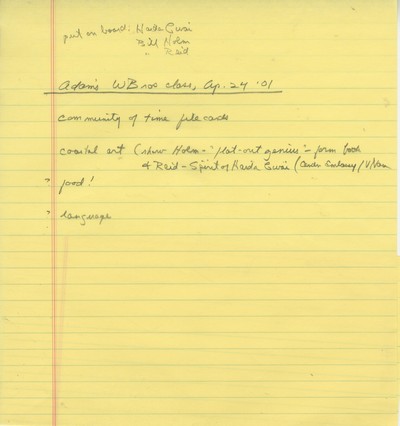 put on board: Haida Gwai
Bill Holm
" Reid
Adam's WBros class, Ap. 24 '01
community of time file cards
coastal art (show Holm - "flat-out genius" - form book
& Reid - Spirit of Haida Gwai (Cadn Embassy/
? food!
? language